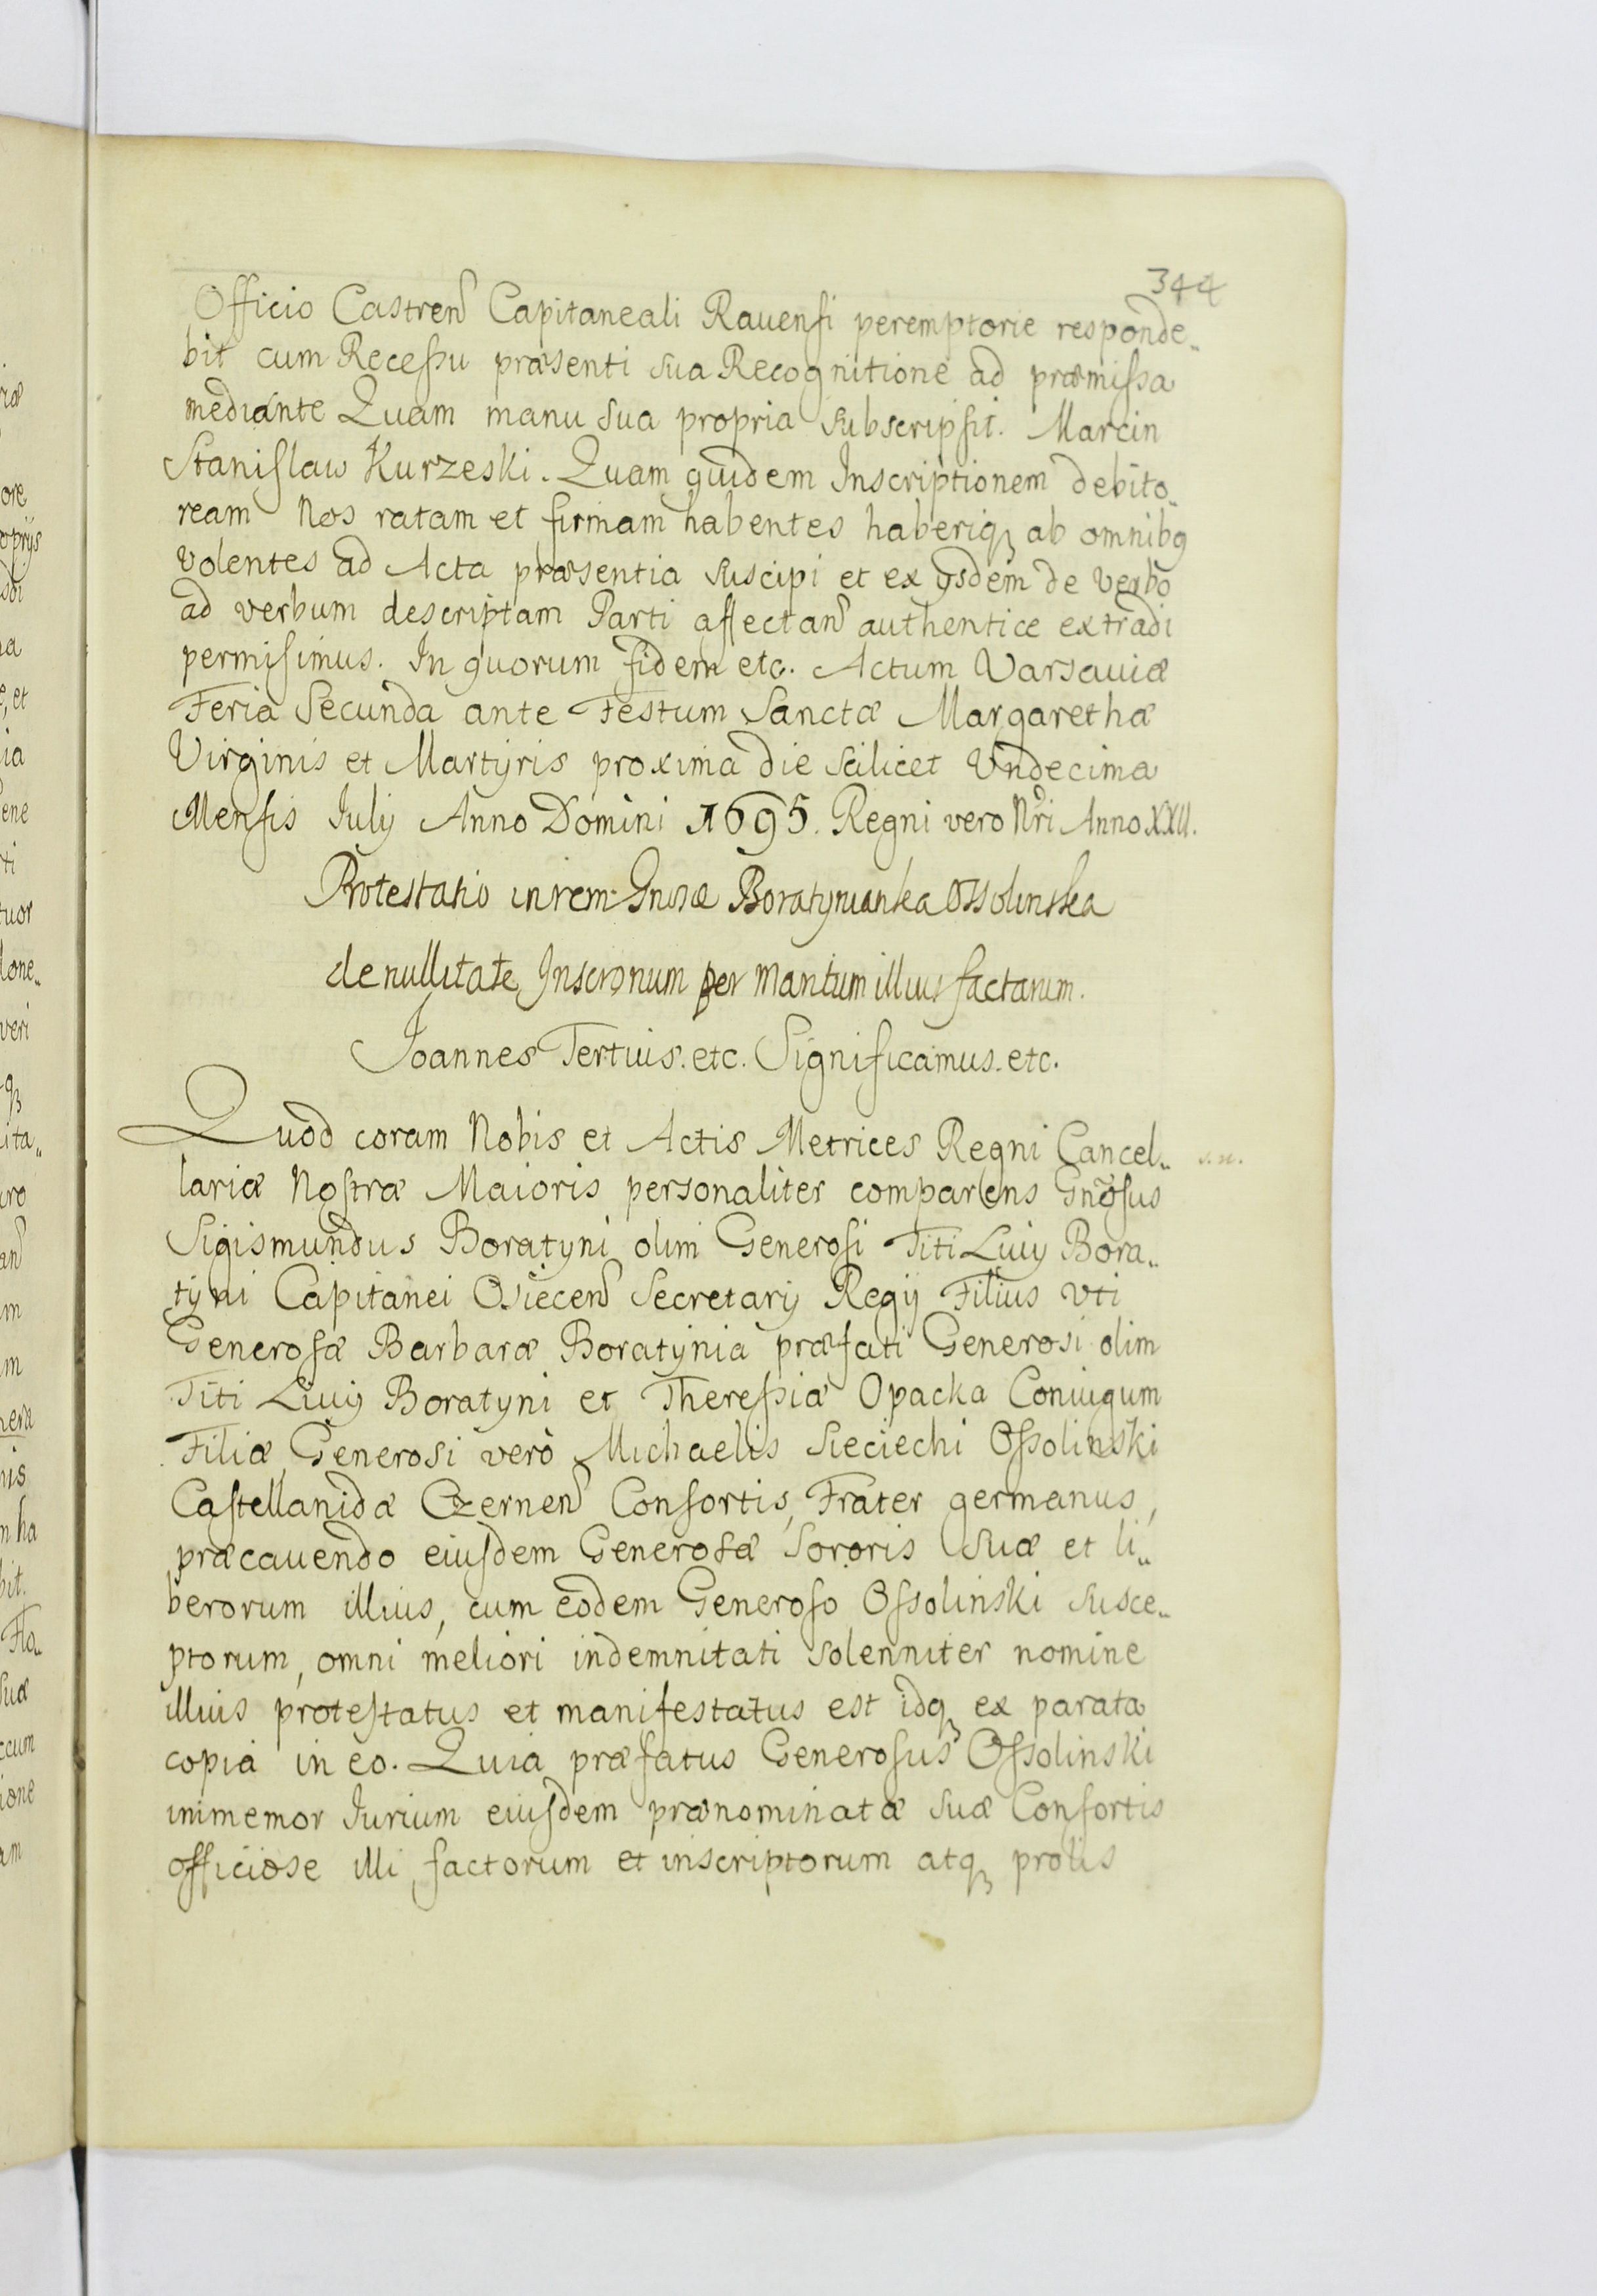 344
Officio Castren Capitaneali Rauensi peremptorie responde„
bit cum Recessu præsenti sua Recognitione ad præmissa
mediante Quam manu sua propria subscripsit. Marcin
Stanislaw Kurzeski. Quam quidem Inscriptionem debito„
ream Nos ratam et firmam habentes haberiq ab omnibq
volentes ad Acta præsentia suscipi et ex ysdem de verbo
ad verbum descriptam Parti affectan authentice extradi
permisimus. In quorum fidem etc. Actum Varsauiæ
Feria Secunda ante Festum Sanctæ Margarethæ
Virginis et Martyris proxima die scilicet Vndecima
Mensis July Anno Domini 1695. Regni vero Nri Anno XXII.
Protestatio in rem Gnosæ Boratynianka Ossolinska
de nullitate Inscronum per Maritum illius factarum.
Joannes Tertius. etc. Significamus. etc.
Quod coram Nobis et Actis Metrices Regni Cancel„
lariæ Nostræ Maioris personaliter comparens Gnosus
Sigismundus Boratyni olim Generosi Titi Liuy Bora„
tyni Capitanei Osiecen Secretary Regy Filius vti
Generosæ Barbaræ Boratynia præfati Generosi olim
Titi Liuy Boratyni et Theressiæ Opacka Coniugum
Filiæ Generosi verò Michaelis Sieciechi Ossolinski
Castellanidæ Czernen Consortis, Frater germanus,
præcauendo eiusdem Generosæ Sororis suæ et li„
berorum illius, cum eodem Generoso Ossolinski susce„
ptorum, omni meliori indemnitati solenniter nomine
illius protestatus et manifestatus est idq ex parata
copia in eo. Quia præfatus Generosus Ossolinski
immemor Iurium eiusdem prænominatæ suæ Consortis
officiose illi factorum et inscriptorum atq prolis